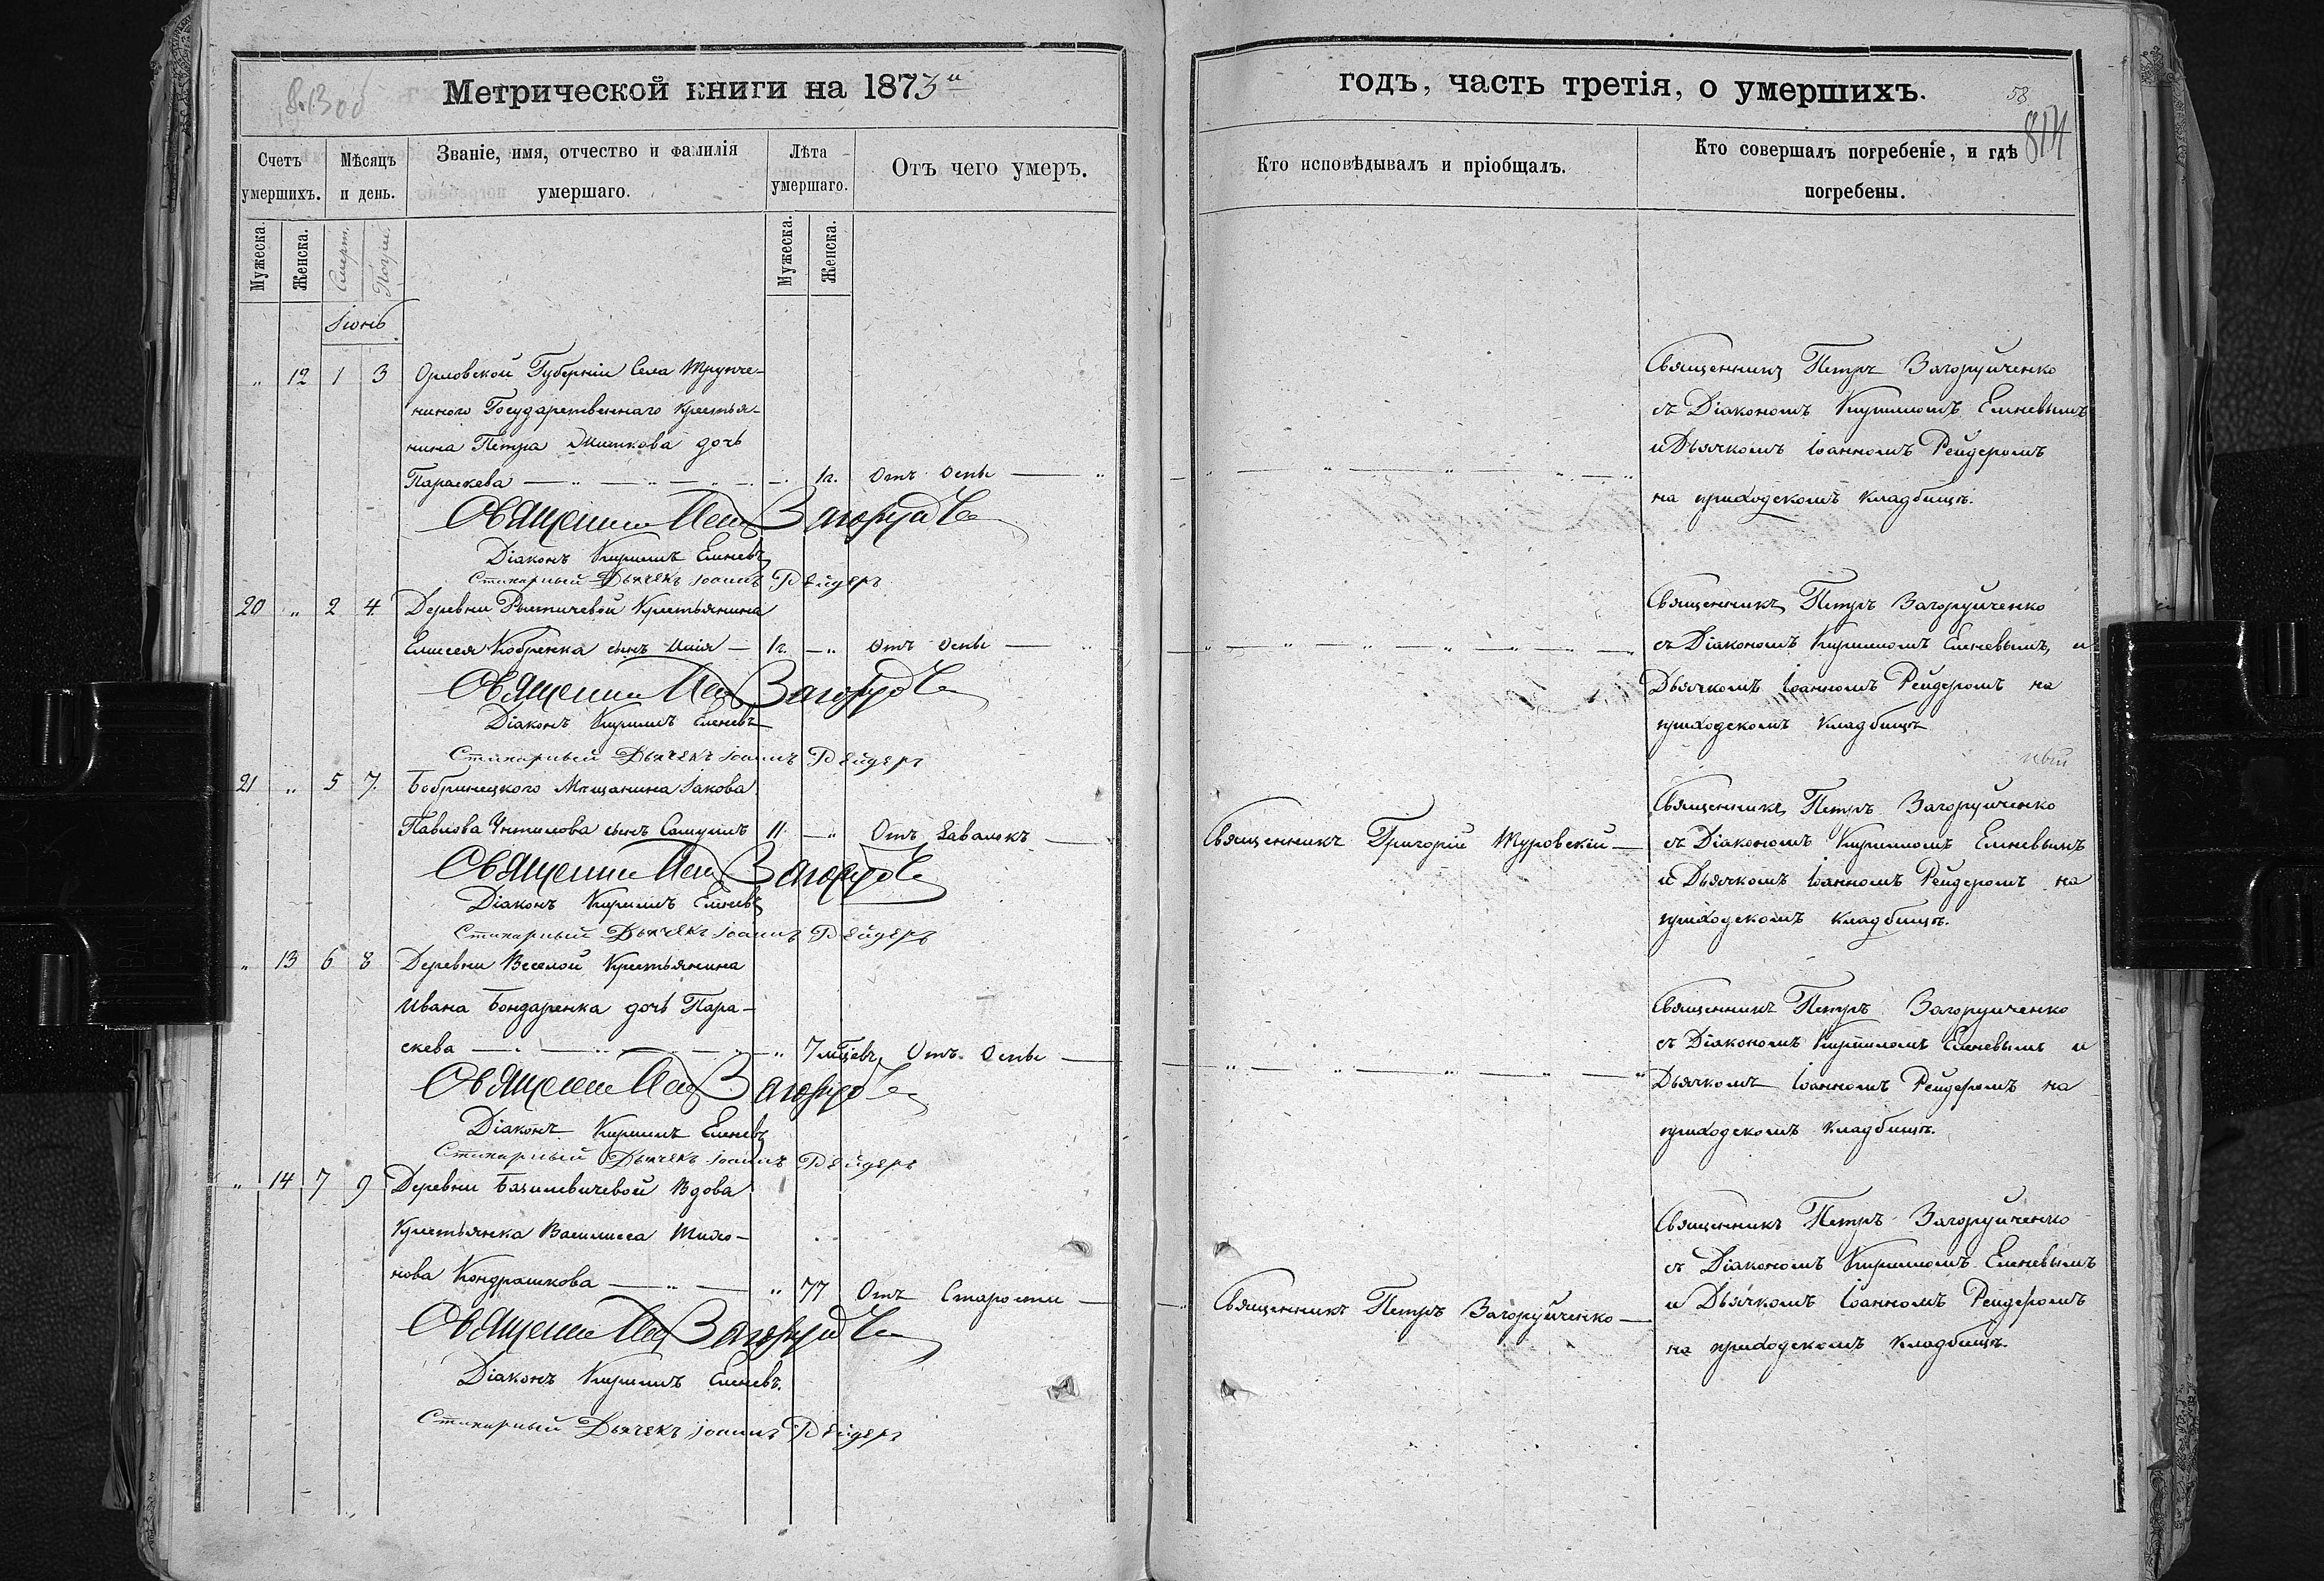 Метрической книги на 1873й
годъ, часть третія, о умершихъ.
58
814
Счетъ умершихъ.
Мѣсяцъ и день.
Званіе, имя, отчество и фамилія умершаго.
Лѣта умершаго.
Отъ чего умеръ.
Кто исповѣдывалъ и пріобщалъ.
Кто совершалъ погребеніе, и гдѣ погребены.
Мужеска.
Женска.
Смерт.
Погреб.
Мужеска.
Женска.
Іюнь
" 12 1 3 Орловской Губерніи Села
Государственнаго Крестья-
нина Петра дочь
Параскева 1г. Отъ Оспы
Священникъ Петръ Загоруйченко
съ Діакономъ Кирилломъ Еленевымъ
и Дьячкомъ Іоанномъ Рейдеромъ
на приходскомъ кладбищѣ.
Священникъ Петръ
Діаконъ Кириллъ Еленевъ
Стихарный Дьячекъ Іоаннъ Рейдеръ
20 " 2 4. Деревни Крестьянина
Елисея Кобренка сынъ Илія 1г. " Отъ Оспы
Священникъ Петръ Загоруйченко
съ Діакономъ Кирилломъ Еленевымъ, и
Дьячкомъ Іоанномъ Рейдеромъ на
приходскомъ кладбищѣ
Священникъ Петръ
Діаконъ Кириллъ Еленевъ
Стихарный Дьячекъ Іоаннъ Рейдеръ
21 " 5 7. Бобринецкого Мѣщанина Іакова
Павлова сынъ Самуилъ 11. " Отъ Завалокъ
Священникъ Григорій Туровскій
Священникъ Петръ Загоруйченко
съ Діакономъ Кирилломъ Еленевымъ
и Дьячкомъ Іоанномъ Рейдеромъ на
приходскомъ кладбищѣ.
Священникъ Петръ
Діаконъ Кириллъ Еленевъ
Стихарный Дьячекъ Іоаннъ Рейдеръ
" 13 6 8 Деревни Веселой Крестьянина
Ивана Бондаренка дочь Пара-
скева " 7 мѣсяцевъ Отъ Оспы
Священникъ Петръ Загоруйченко
съ Діакономъ Кирилломъ Еленевымъ и
Дьячкомъ Іоанномъ Рейдеромъ на
приходскомъ кладбищѣ.
Священникъ Петръ
Діаконъ Кириллъ Еленевъ
Стихарный Дьячекъ Іоаннъ Рейдеръ
" 14 7 9 Деревни Базилевичевой Вдова
Крестьянка Василисса Тихо-
нова Кондрашкова " 77 Отъ Старости
Священникъ Петръ Загоруйченко
Священникъ Петръ Загоруйченко
съ Діакономъ Кирилломъ Еленевымъ
и Дьячкомъ Іоанномъ Рейдеромъ
на приходскомъ кладбищѣ.
Священникъ Петръ
Діаконъ Кириллъ Еленевъ.
Стихарный Дьячекъ Іоаннъ Рейдеръ